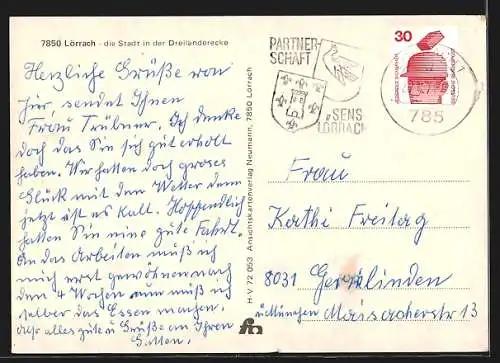 7850 Lörrach - die Stadt in der Dreiländerecke
Herzliche Grüße von
hier, sendet Ihnen
Frau Trübner. Ich denke
doch das Sie sich gut erholt
haben. Wir hatten doch groses
Glück mit dem Wetter denn
jetzt ist es kalt. Hoffendlich
hatten Sie eine gute Fahrt.
An das Arbeiten muß ich
mich erst gewöhnen nach
den 4 Wochen nun muß ich
selber das Essen machen.
alles gute u Grüße an Ihren
Gatten.
H - V 72 053 Ansichtskartenverlag Neumann, 7850 Lörrach
PARTNER-
SCHAFT
SENS
LÖRRACH
785
30
DEUTSCHE BUNDESPOST
Frau
Kathi Freitag
8031 Gerlinden
ü. München Maisacherstr 13